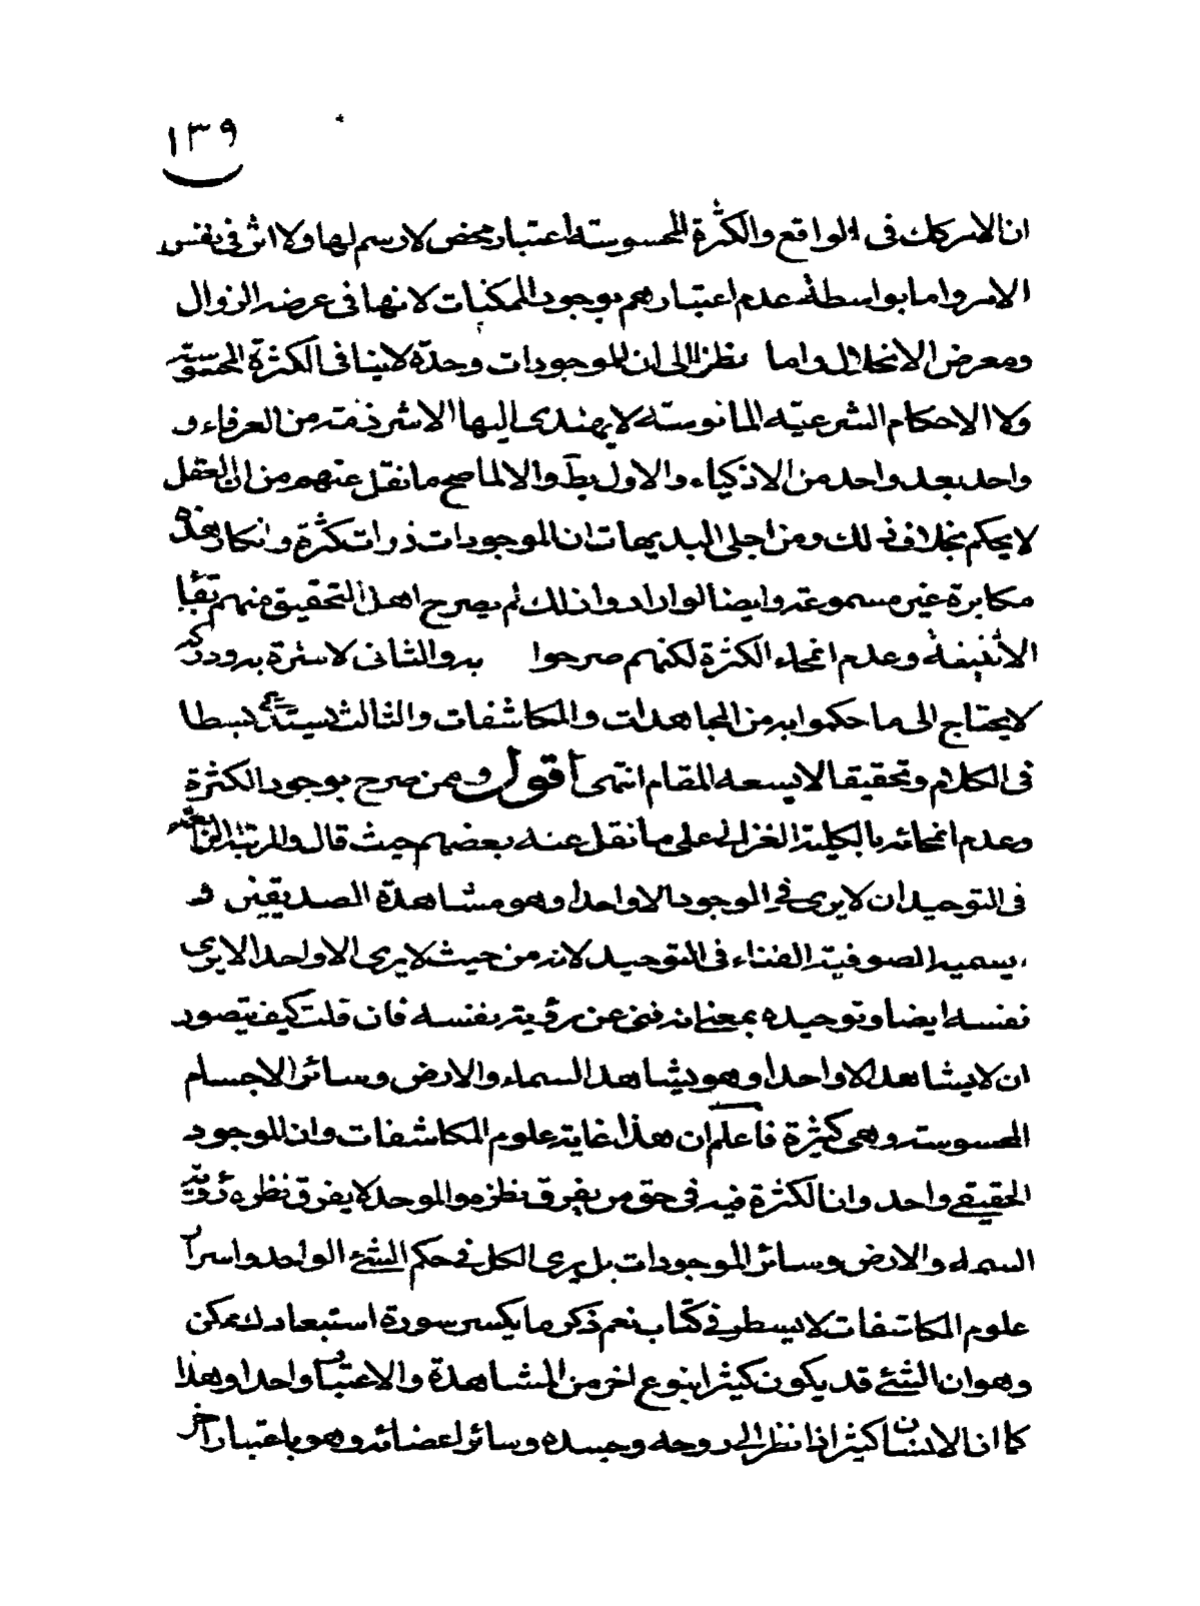 ١٣٩
ان الامر كك فى الواقع والكثرة المحسوسته اعتبار محض لا رسم لها ولا اثر فى نفس
الامر واما بواسطة عدم اعتبارهم بوجود الممكنات لانها فى عرضه الزوال
ومعرض الانحلال واما نظرا الى ان للموجودات وحدة لا ينافى الكثرة المحسوسته
ولا الاحكام الشرعيته المانوسته لا يهتدى اليها الا شرذمته من العرفاء و
واحد بعد واحد من الاذكياء والاول بط والا لما صح ما نقل عنهم من ان العقل
لا يحكم بخلاف ذلك ومن اجلى البديهات ان الموجودات ذوات كثرة وانكار هذه
مكابرة غير مسموعته وايضا لو ارادوا ذلك لم يصرح اهل التحقيق منهم ببقاء
الأثنينة وعدم انمحاء الكثرة لكنهم صرحوا به والثانى لا سترة به ودركه
لا يحتاج الى ما حكموا به من المجاهدات والمكاشفات والثالث يستدعى بسطا
فى الكلام وتحقيقا لا يسعه المقام انتهى أقول وممن صرح بوجود الكثرة
وعدم انمحائه بالكلية الغزالى على ما نقل عنه بعضهم حيث قال والمرتبة الرابعة
فى التوحيد ان لا يرى فى الوجود الا واحدا وهو مشاهدة الصديقين و
يسميه الصوفية الفناء فى التوحيد لانه من حيث لا يرى الا واحدا لا يرى
نفسه ايضا وتوحيده بمعنى انه فنى عن رؤيته بنفسه فان قلت كيف يتصور
ان لا يشاهد الا واحدا وهو يشاهد السماء والارض وسائر الاجسام
المحسوسته وهى كثيرة فاعلم ان هذا غاية علوم المكاشفات وان للموجود
الحقيقى واحد وان الكثرة فيه فى حق من يفرق نظره والموحد لا يفرق نظره رؤية
السماء والارض وسائر الموجودات بل يرى الكل فى حكم الشئ الواحد واسرار
علوم المكاشفات لا يسطر فى كتاب نعم ذكر ما يكسر سورة استبعادك ممكن
وهو ان الشئ قد يكون كثيرا بنوع اخر من المشاهدة والاعتبار واحدا وهذا
كما ان الانسان كثير اذا نظر الى روحه وجسده وسائر اعضائه وهو باعتبار اخر